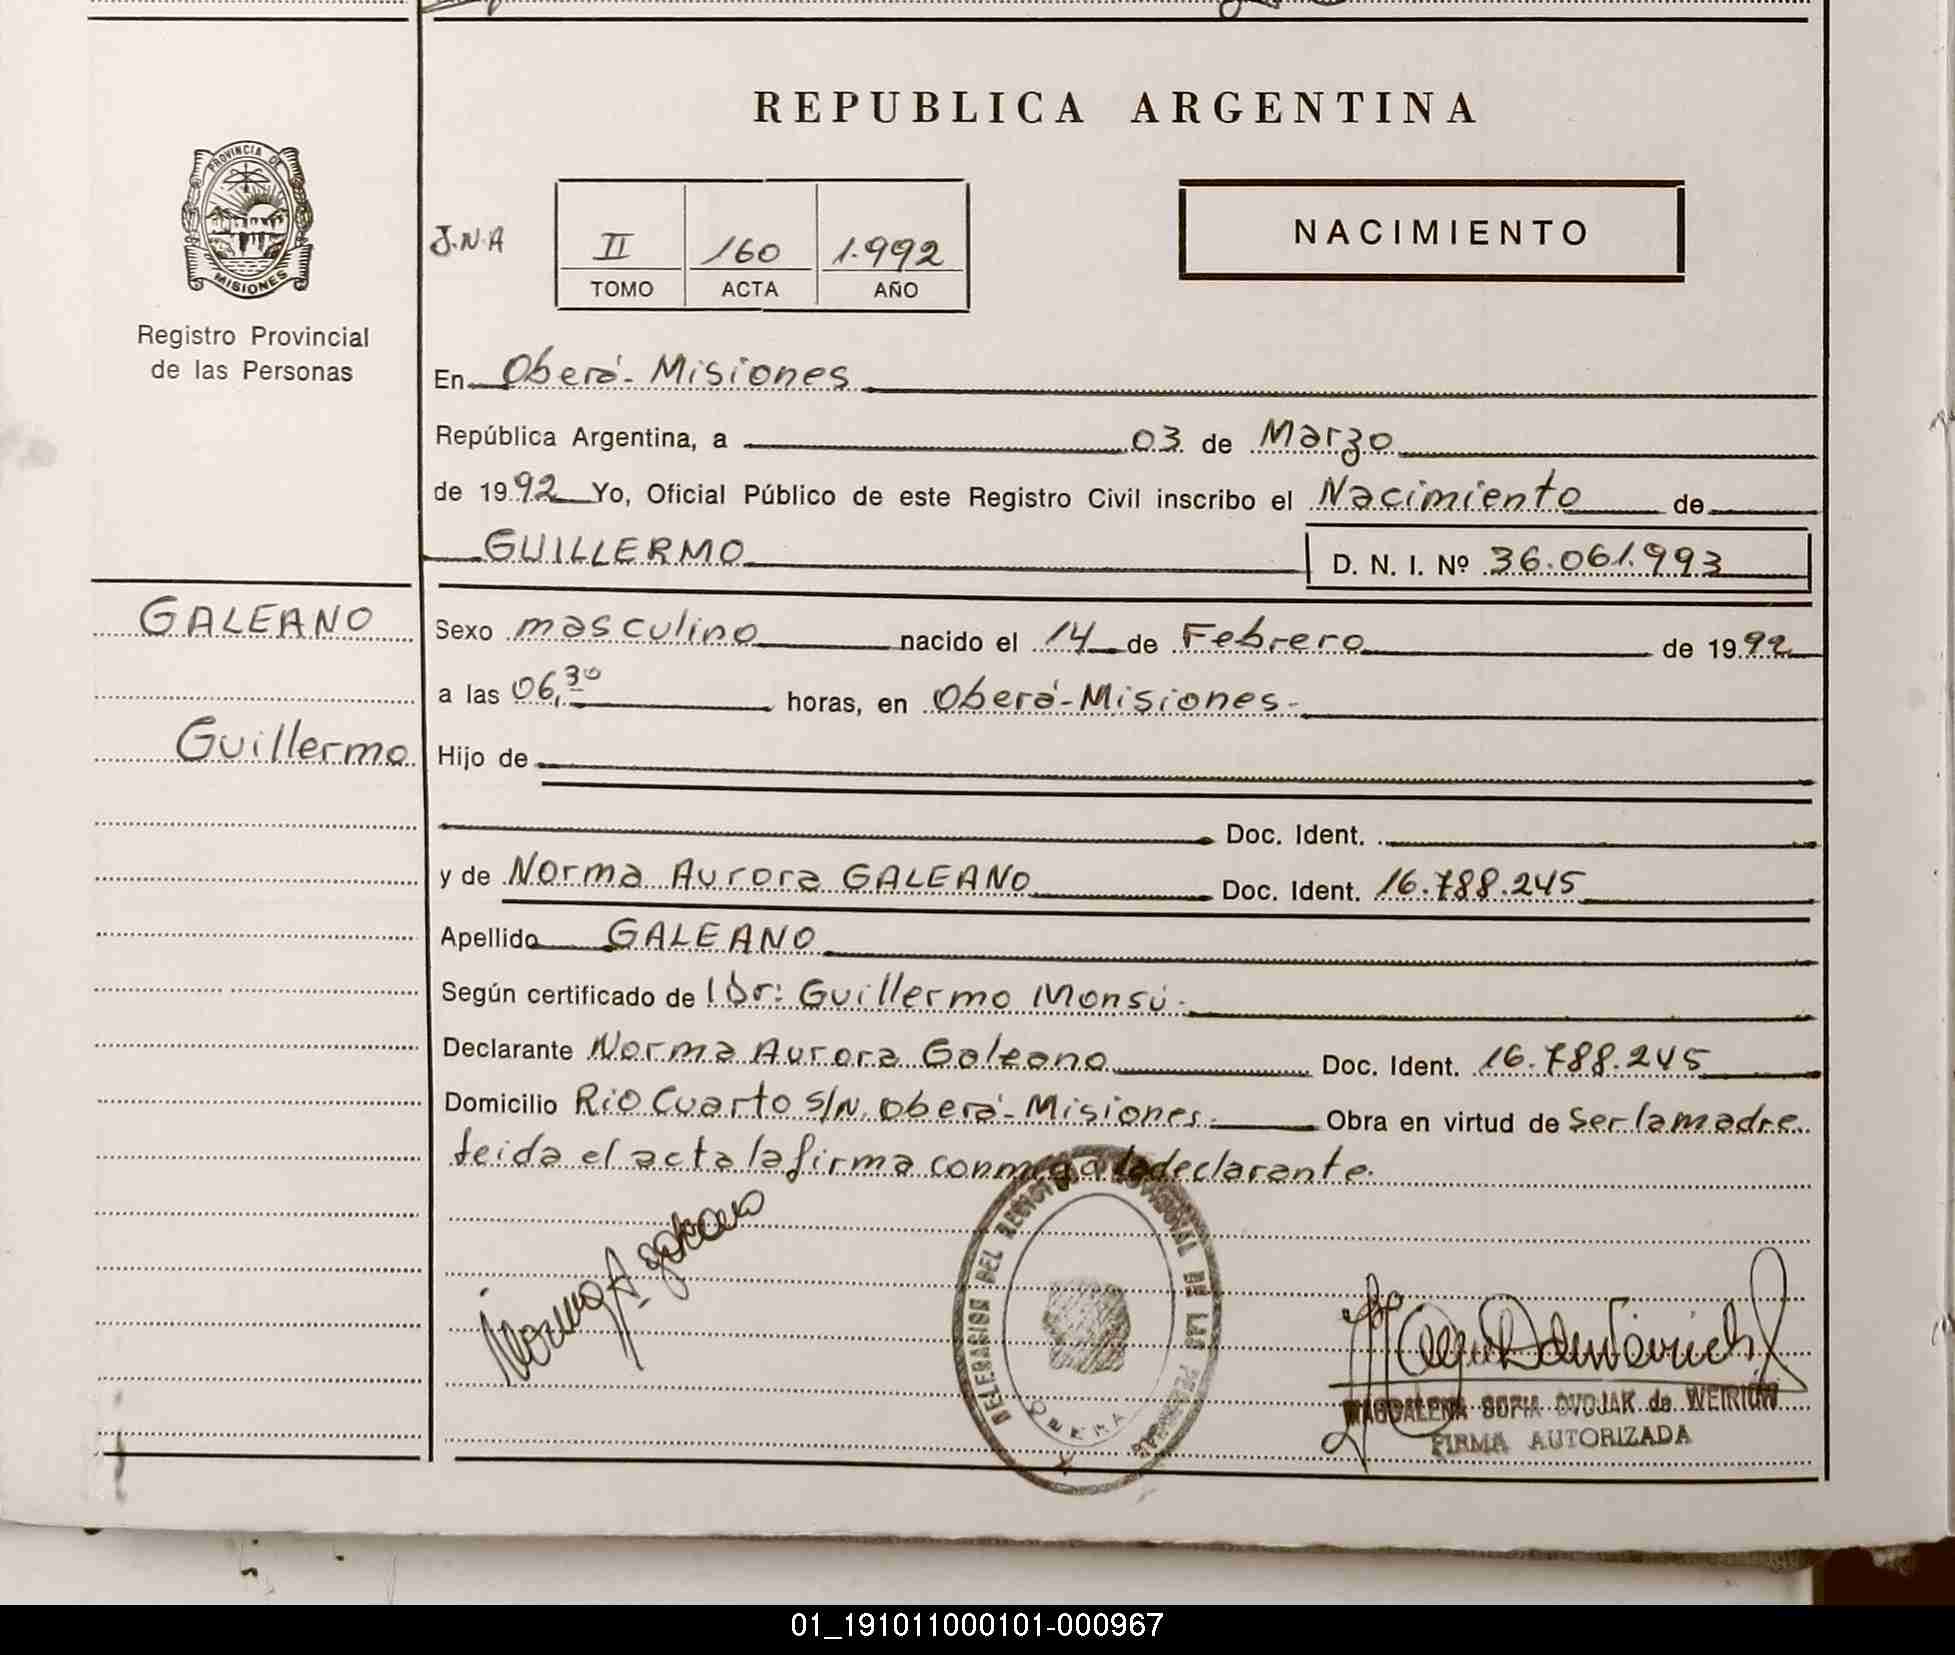 REPUBLICA ARGENTINA
PROVINCIA DE
MISIONES
Registro Provincial
de las Personas
J.N.A
II 160 1.992
TOMO ACTA AÑO
NACIMIENTO
En Oberá- Misiones
República Argentina, a 03 de Marzo
de 1992 Yo, Oficial Público de este Registro Civil inscribo el Nacimiento de
GUILLERMO D. N. I. Nº 36.061.993
GALEANO
Guillermo
Sexo masculino nacido el 14 de Febrero de 1992
a las 06,30 horas, en Oberá-Misiones-
Hijo de
Doc. Ident.
y de Norma Aurora GALEANO Doc. Ident. 16.788.245
Apellido GALEANO
Según certificado de Dr: Guillermo Monsú-
Declarante Norma Aurora Galeano Doc. Ident. 16.788.245
Domicilio Rio Cuarto S/N. Oberá-Misiones- Obra en virtud de Ser la madre
leida el acta la firma conmigo la declarante.
Norma A. Galeano
DELEGACION DEL REGISTRO PROVINCIAL DE LAS PERSONAS
OBERA
MAGDALENA SOFIA DVOJAK de
FIRMA AUTORIZADA
01_191011000101-000967